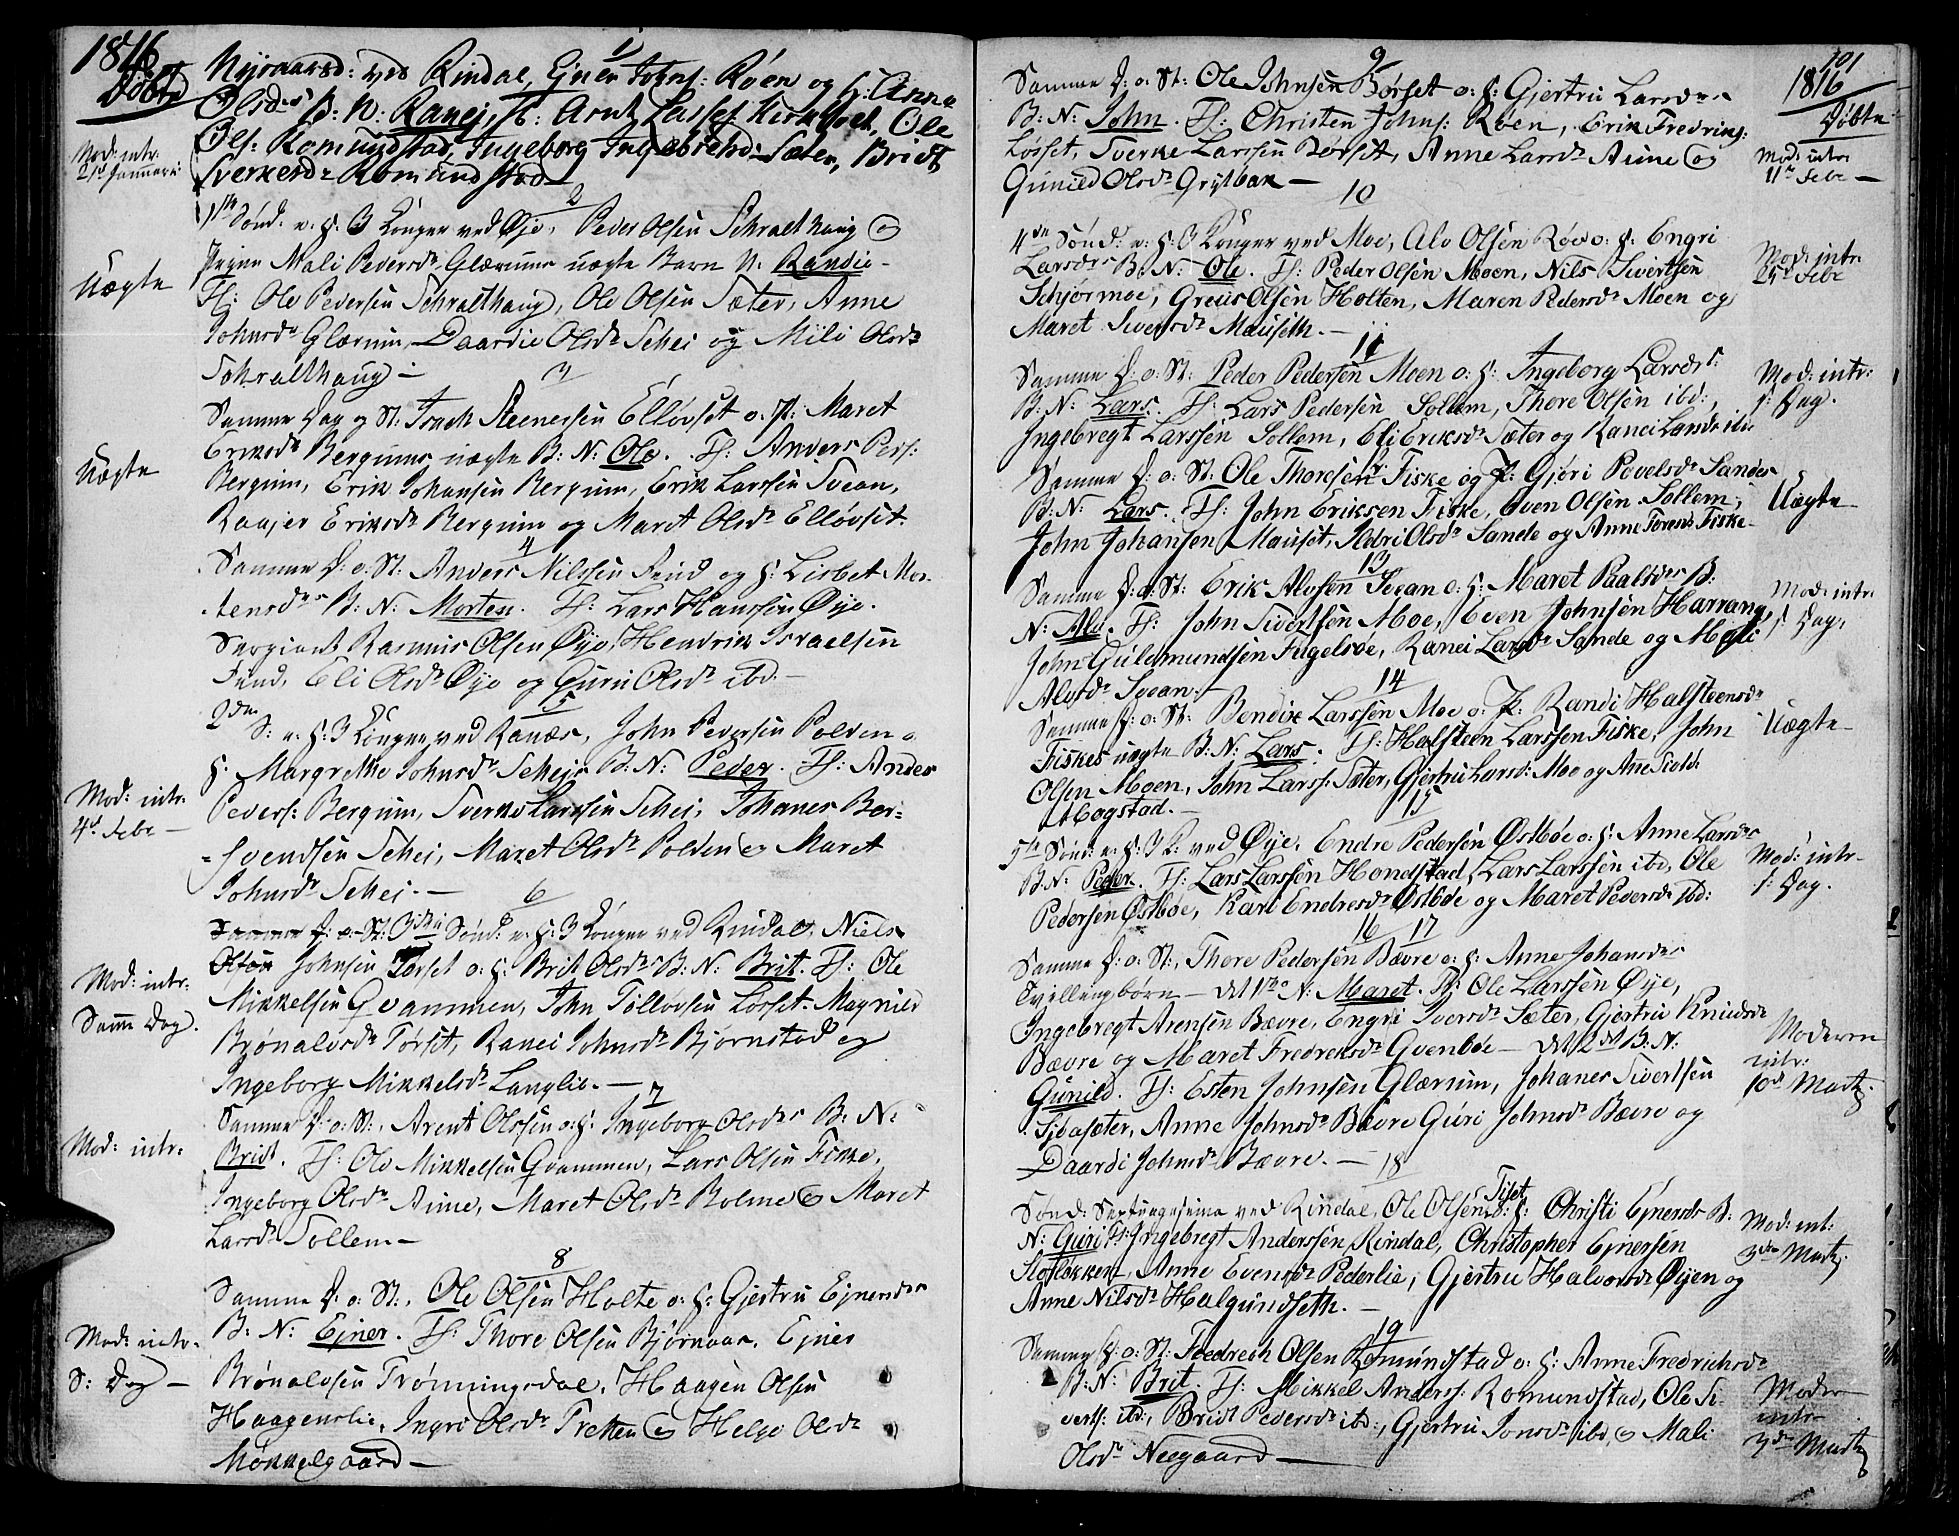 1816
Døbte
1
Nyeaarsd: ved Rindal, Ejner Johns: Röen og H: Anna
Olsdr B: N: Ranej, F: Arnt Larss: Kirkholt, Ole
Ols: Romundstad, Ingeborg Ingebrehtsd: Sæter, Bridt
Sverkesdr Romundstad
Mod: intr.
21d Januarii
2
1ste Sønd: e: H: 3 Konger ved Øje, Peder Olsen Schralthaug og
Pigen Mali Pedersdr Glærums uægte Barn N: Randie
F: Ole Pedersen Schralthaug, Ole Olsen Sæter, Anne
Johnsdr Glærum, Daardie Olsdr Schei og Mili Olsdr
Schralthaug –
Uægte
3
Samme Dag og St: Isach Steenersen Elløvset o: P: Maret
Eriksdr Bergums uægte B: N: Ole. F: Anders Pers:
Bergum, Erik Johansen Bergum, Erik Larsen Svean,
Raajer Eriksdr Bergum og Maret Olsdr Elløvset.
Uægte
4
Samme D: o: St: Anders Nilssen Fund og H: Lisbet Mor-
tensdr B: N: Morten. F: Lars Hanssen Øye.
Sergiant Rasmus Olsen Øye, Hendrik Israelsen
Fund, Eli Olsdr Øye og Guru Olsdr ibd. –
5
2den S: e: H: 3 Konger ved Ranæs, John Pedersen Polden o
H: Margrethe Johnsdr Schei B: N: Peder. F: Anders
Peders: Bergum, Sverke Larssen Schei, Johanes Ber-
-svendsen Schei, Maret Olsdr Polden og Maret
Johnsdr Schei. –
Mod: intr:
4d Febr –
6
Samme D: o: St: 3die Sønd: e: H: 3 Konger ved Rindal, Niels
Olsen Johnsen Tørset o: H: Brit Olsdr B: N: Brit. F: Ole
Mikkelsen Qvammen, John Tølløvsen Løset, Magnild
Brønalvsdr Tørset, Ranei Johnsdr Bjørnstad og
Ingeborg Mikkelsdr Langlie. –
Mod: intr.
Samme Dag.
7
Samme D: o: St:, Arent Olssen o: H: Ingeborg Olsdr B: N:
Bridt. F: Ole Mikkelsen Qvammen, Lars Olsen Fiske,
Ingeborg Olsdr Aune, Maret Olsdr Bolme og Maret
Larsdr Sollem –
Mod: intr:
8
Samme D: o: St:, Ole Olsen Holte o: H: Gjertru Ejnersdr
B: N: Ejner. F: Thore Olsen Bjørnaas, Ejner
Brønalvsen Trønningsdal, Haagen Olsen
Haagenslie, Ingri Olsdr Tretten og Helge Olsdr
Møkkelgaard –
Mod: intr.
S: Dag –
101
1816
Døbte
9
Samme D: o: St: Ole Johnsen Børset o: H: Gjertru Larsdr
B: N: John. F: Christen Johns: Roen, Erik Fredriks:
Løsset, Sverke Larssen Børset, Anne Larsdr Aune og
Gunild Olsdr Grytbak –
Mod: intr
11te Febr –
10
4de Sønd: e: H: 3 Konger ved Moe, Alv Olsen Røv o: H: Engri
Larsdr B: N: Ole. F: Peder Olsen Moen, Nils Sivertsen
Schjørmoe, Greüs Olsen Holten, Maren Pedersdr Moen og
Maret Siversdr Mauseth. –
Mod: intr
25d Febr
11
Samme D: o: St: Peder Pedersen Moen o: H: Ingeborg Larsdr:
B: N: Lars. F: Lars Pedersen Sollem, Thore Olsen ibd:,
Ingebregt Larssen Sollem, Eli Eriksdr Sæter og Ranei Larsdr ibd
Mod: intr:
s: Dag.
Samme D: o: St: Ole Thoresen Fiske og P: Gjøri Povelsdr Sandes
B: N: Lars. F: John Eriksen Fiske, Even Olsen Sollem,
John Johansen Mauset, Sldri Olsdr Sande og Anne Toresdr Fiske
Uægte
13
Samme D: o: St: Erik Alvsen Svean o: H: Maret Paalsdr B:
N: Alv. F: John Sivertsen Moe, Even Johnsen Harrang,
John Gulemundsen Fugelsøe, Ranei Larsdr Sande og Mali
Alvsdr Svean. –
Mod: intr:
s: Dag,
14
Samme D: o: St: Bendix Larssen Moe o: P: Randi Halsteensdr
Fiskes uægte B: N: Lars. F: Halsteen Larssen Fiske, John
Olsen Moen, John Larss: Sæter, Gjertru Larsd: Moe og Ane
Mogstad. –
Uægte
15
5te Sønd: e: H: 3 K: ved Øye, Endre Pedersen Østbøe o: H: Anne Larsdr
B: N: Peder. F: Lars Larssen Hondstad, Lars Larssen ibd, Ole
Pedersen Østbøe, Kari Endresdr Østbøe og Maret Pedersdr ibd:
Mod: intr
s: Dag.
16 17
Samme D: o: St:, Thore Pedersen Bævre o: H: Anne Johansdr
Tvillingbørn – det 1ste N: Maret. F: Ole Larssen Øye,
Ingebregt Arensen Bævre, Engri Iversdr Sæter, Gjertru Knudsdr
Bævre og Maret Fredreksdr Qvenbøe – det 2det B: N:
Gunild. F: Esten Johnsen Glærum, Johanes Sivertsen
Sjøasæter, Anne Johnsdr Bævre Guri Johnsdr Bævre og
Daardi Johnsdr Bævre. –
Moderen
intr:
10de Martz.
18
Sønd: Septuagesima ved Rindal, Ole Olsen Tiset o: H: Christi Ejnersdr B:
N: Guri F: Ingebregt Anderssen Rindal, Christopher Ejnersen
Slotløkken, Anne Evensdr Pederlie, Gjertru Halvorsdr Øyen og
Anne Nilsdr Halgundseth. –
Mod: int:
3die Martz.
19
Samme D: o: St: Fredrech Olsen Romundstad o: H: Anne Fredrichsdr
B: N: Brit. F: Mikkel Anderss: Romundstad, Ole Si-
verts: ibd:, Bridt Pedersdr ibd:, Gjertru Jonsdr ibd, o Mali
Olsdr Neegaard –
Moder
intr
3de Martz